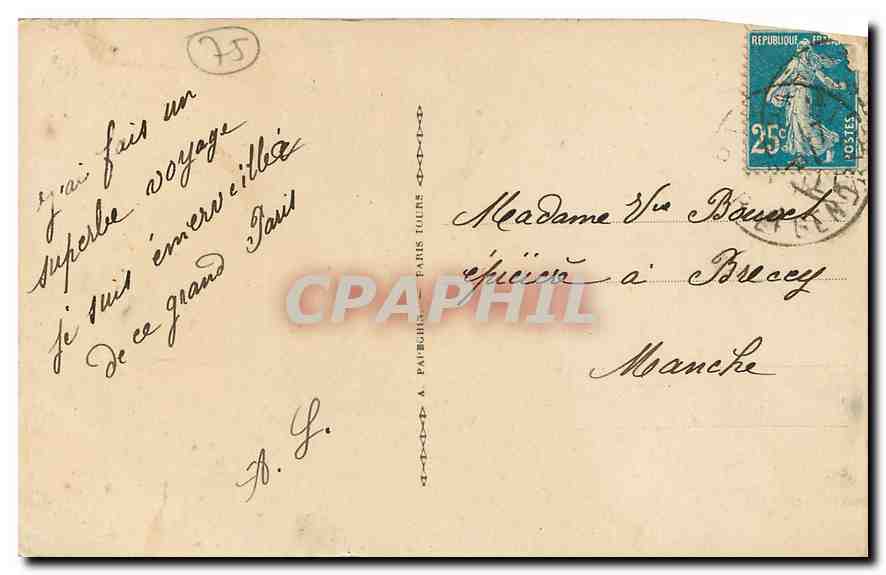 75
j'ai fais un
superbe voyage
je suis émerveillé
de ce grand Paris
A. L.
A. PAPEGHIN — PARIS TOURS
REPUBLIQUE FRANÇ
25c
POSTES
Madame Vve
épicière à Brecey
Manche
CPAPHIL